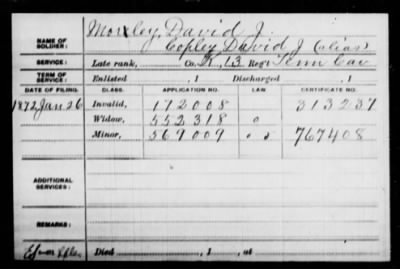 NAME OF SOLDIER: Moxley, David J.
Copley, David J (alias)
SERVICE: Late rank, Co. K, 13 Reg't Tenn Cav
TERM OF SERVICE: Enlisted , 1 Discharged , 1
DATE OF FILING. CLASS. APPLICATION NO. LAW CERTIFICATE NO.
1872 Jan 26 Invalid, 172008 313237
Widow, 552318
Minor, 569009 767408
ADDITIONAL SERVICES:
REMARKS:
Died , 1 , at